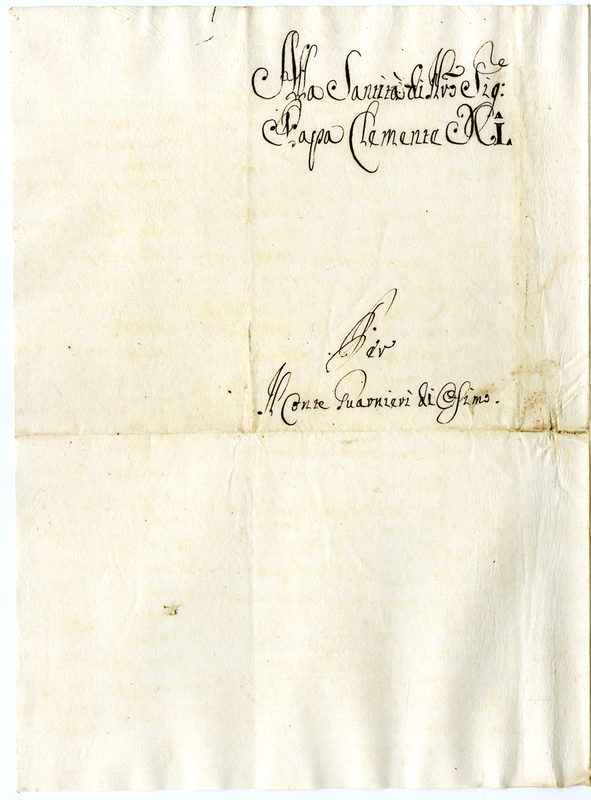 Alla Santità di Nro Sigre
Papa Clemente XI.
Per
Il Conte Guarnieri di Osimo.